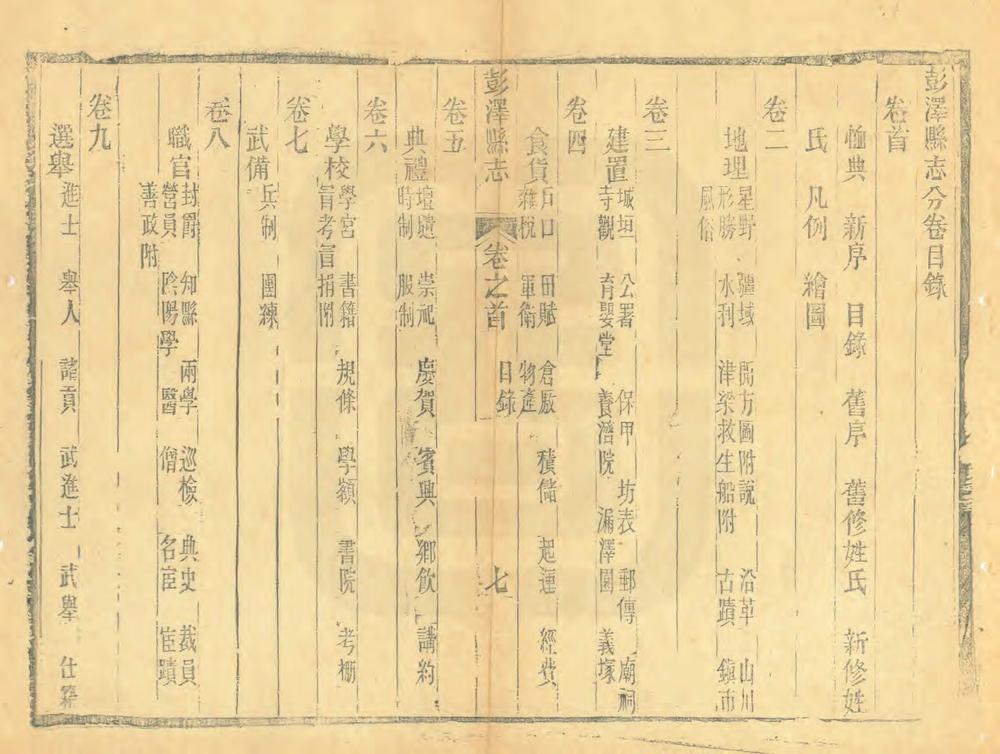 彭澤縣志分卷目錄
卷首
恤典 新序 目錄 舊序 舊修姓氏 新修姓
氏 凡例 繪圖
卷二
地理
星野 疆域 開方圖附說 沿革 山川
形勝 水利 津梁救生船附 古蹟 鎮市
風俗
卷三
建置
城垣 公署 保甲 坊表 郵傳 廟祠
寺觀 育嬰堂 養濟院 漏澤園 義塚
卷四
食貨
戶口 田賦 倉廒 積儲 起運 經費
雜稅 軍衛 物產
彭澤縣志 卷之首 目錄 七
卷五
典禮
壇壝 崇祀 慶賀 賓興 鄉飲 講約
時制 服制
卷六
學校
學宮 書籍 規條 學額 書院 考棚
盲考盲捐附
卷七
武備
兵制 團練
卷八
職官
封爵 知縣 兩學 巡檢 典史 裁員
營員 陰陽學 醫 僧 名宦 宦蹟
善政附
卷九
選舉 進士 舉人 諸貢 武進士 武舉 仕籍